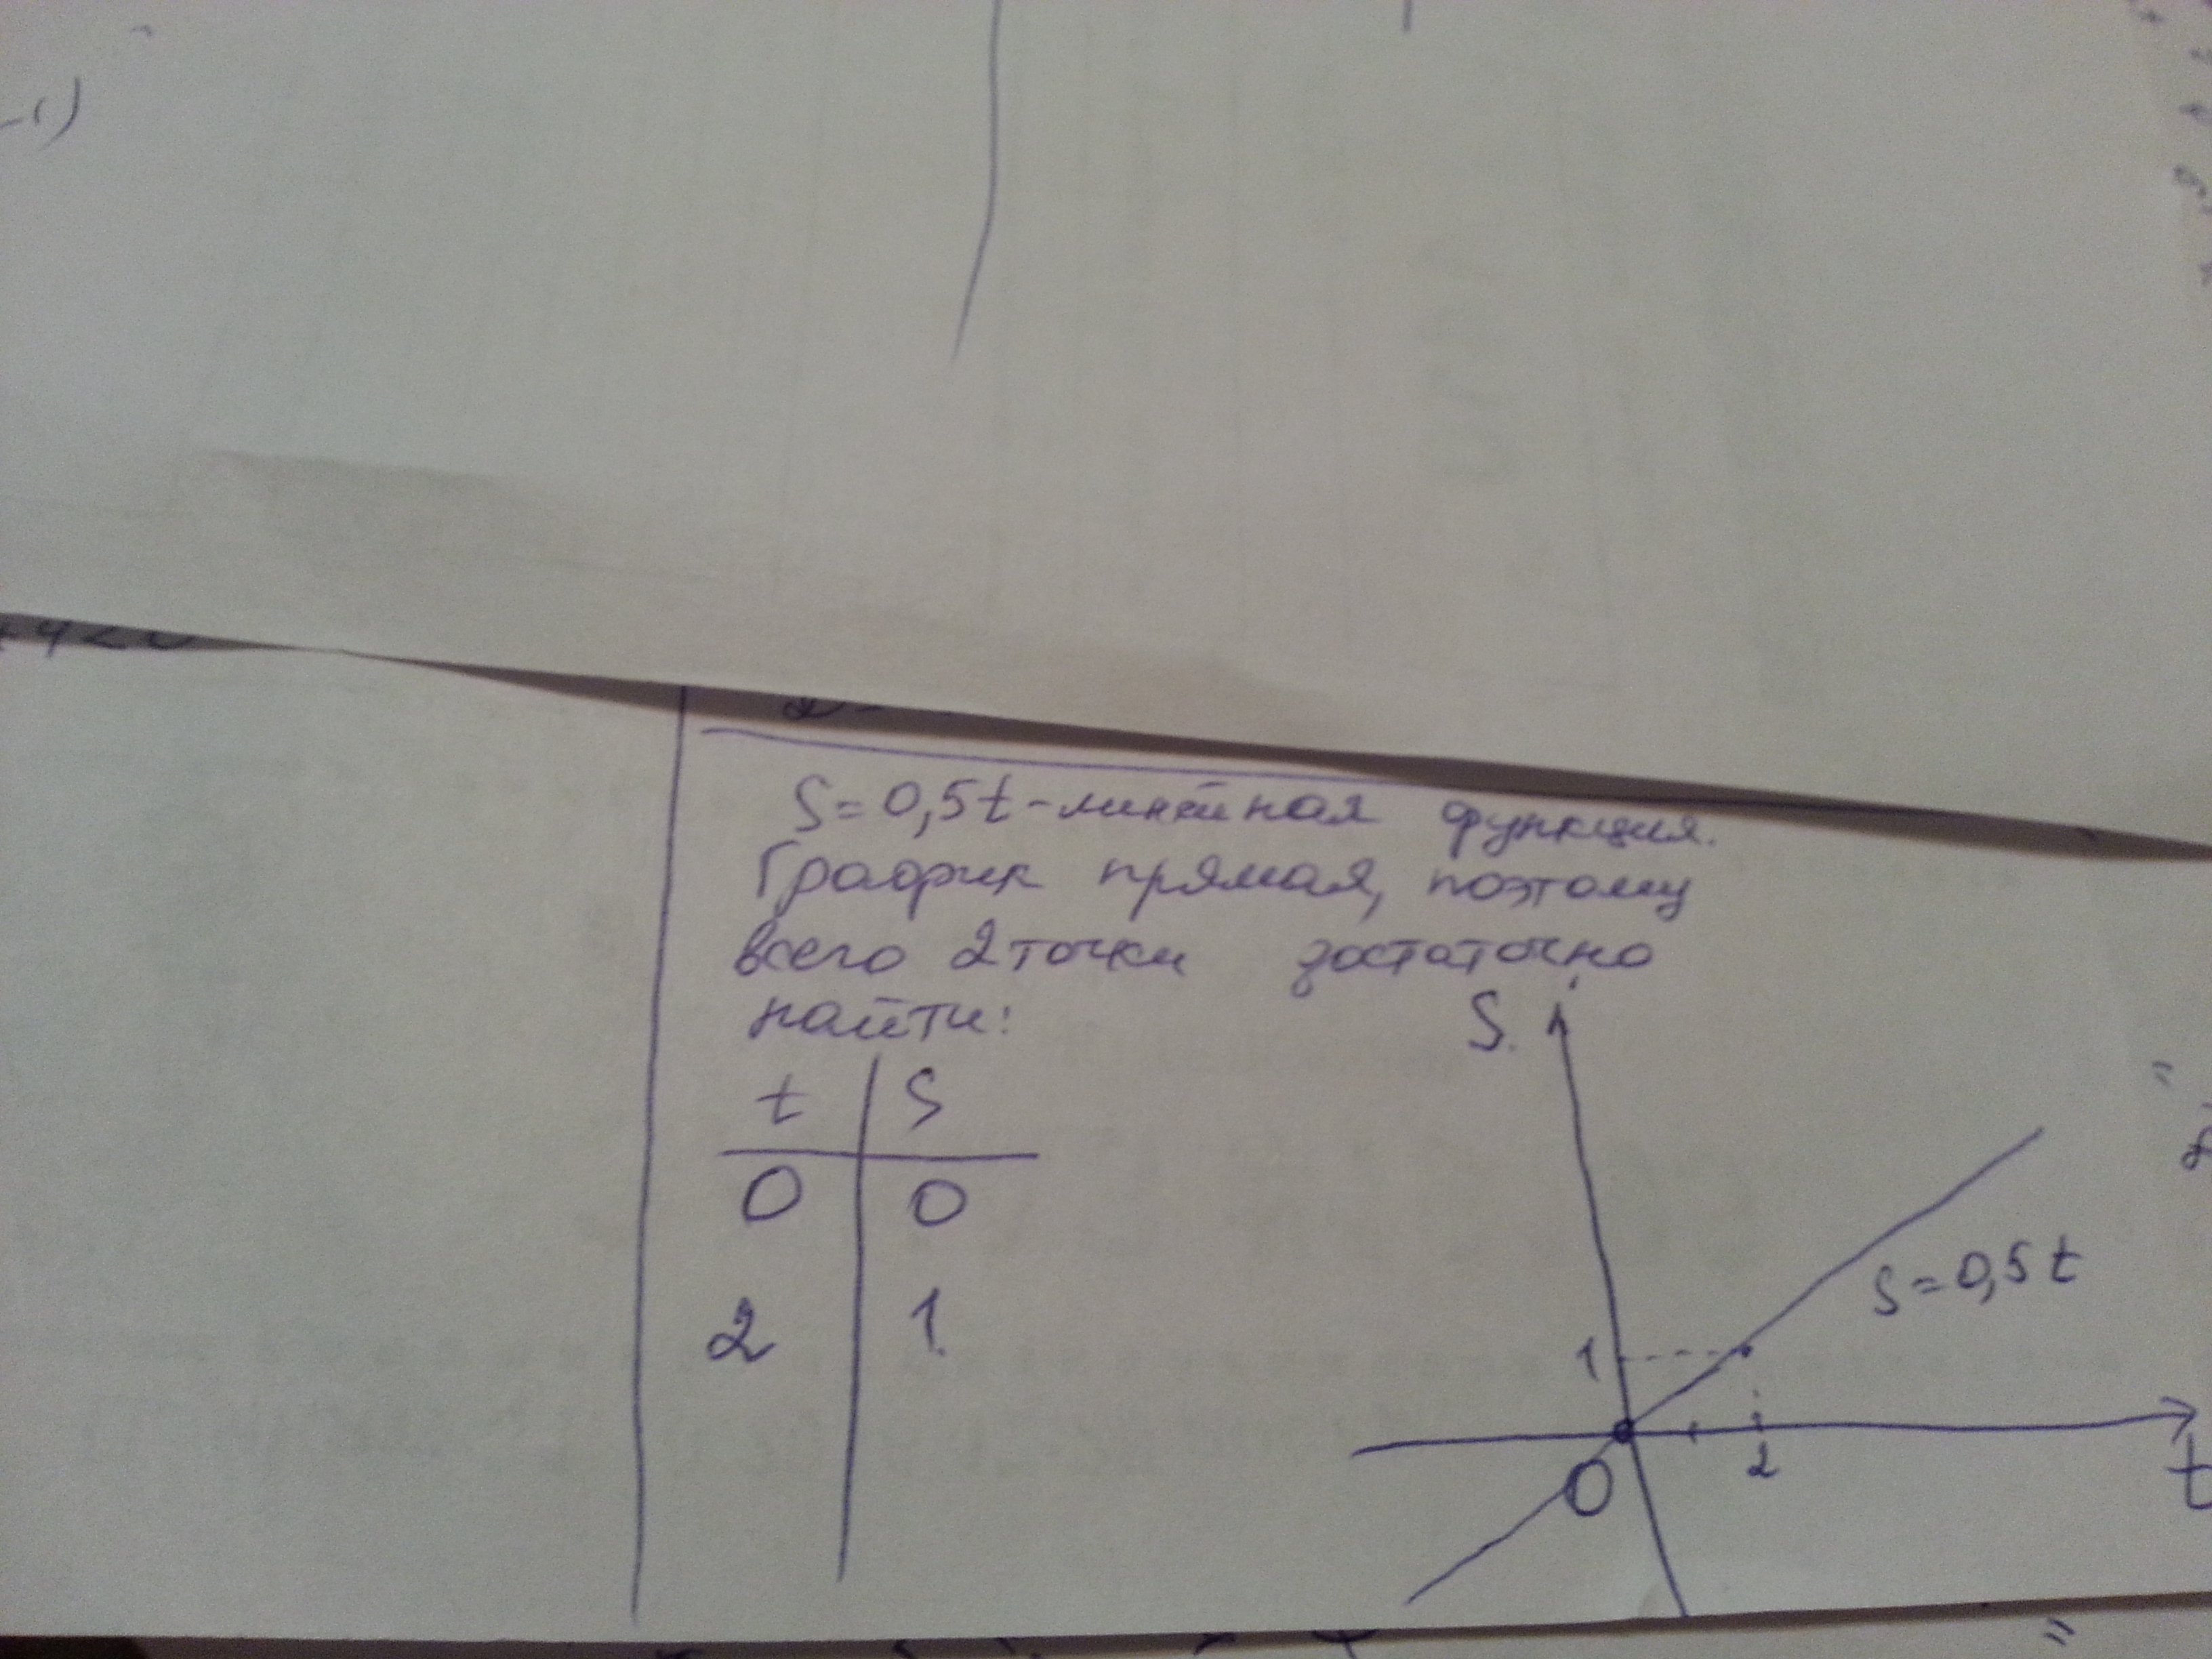 -1)
S=0,5t-линейная функция.
График прямая, поэтому
всего 2 точки достаточно
найти:
t S
0 0
2 1
S
S=0,5t
1
0
2
t